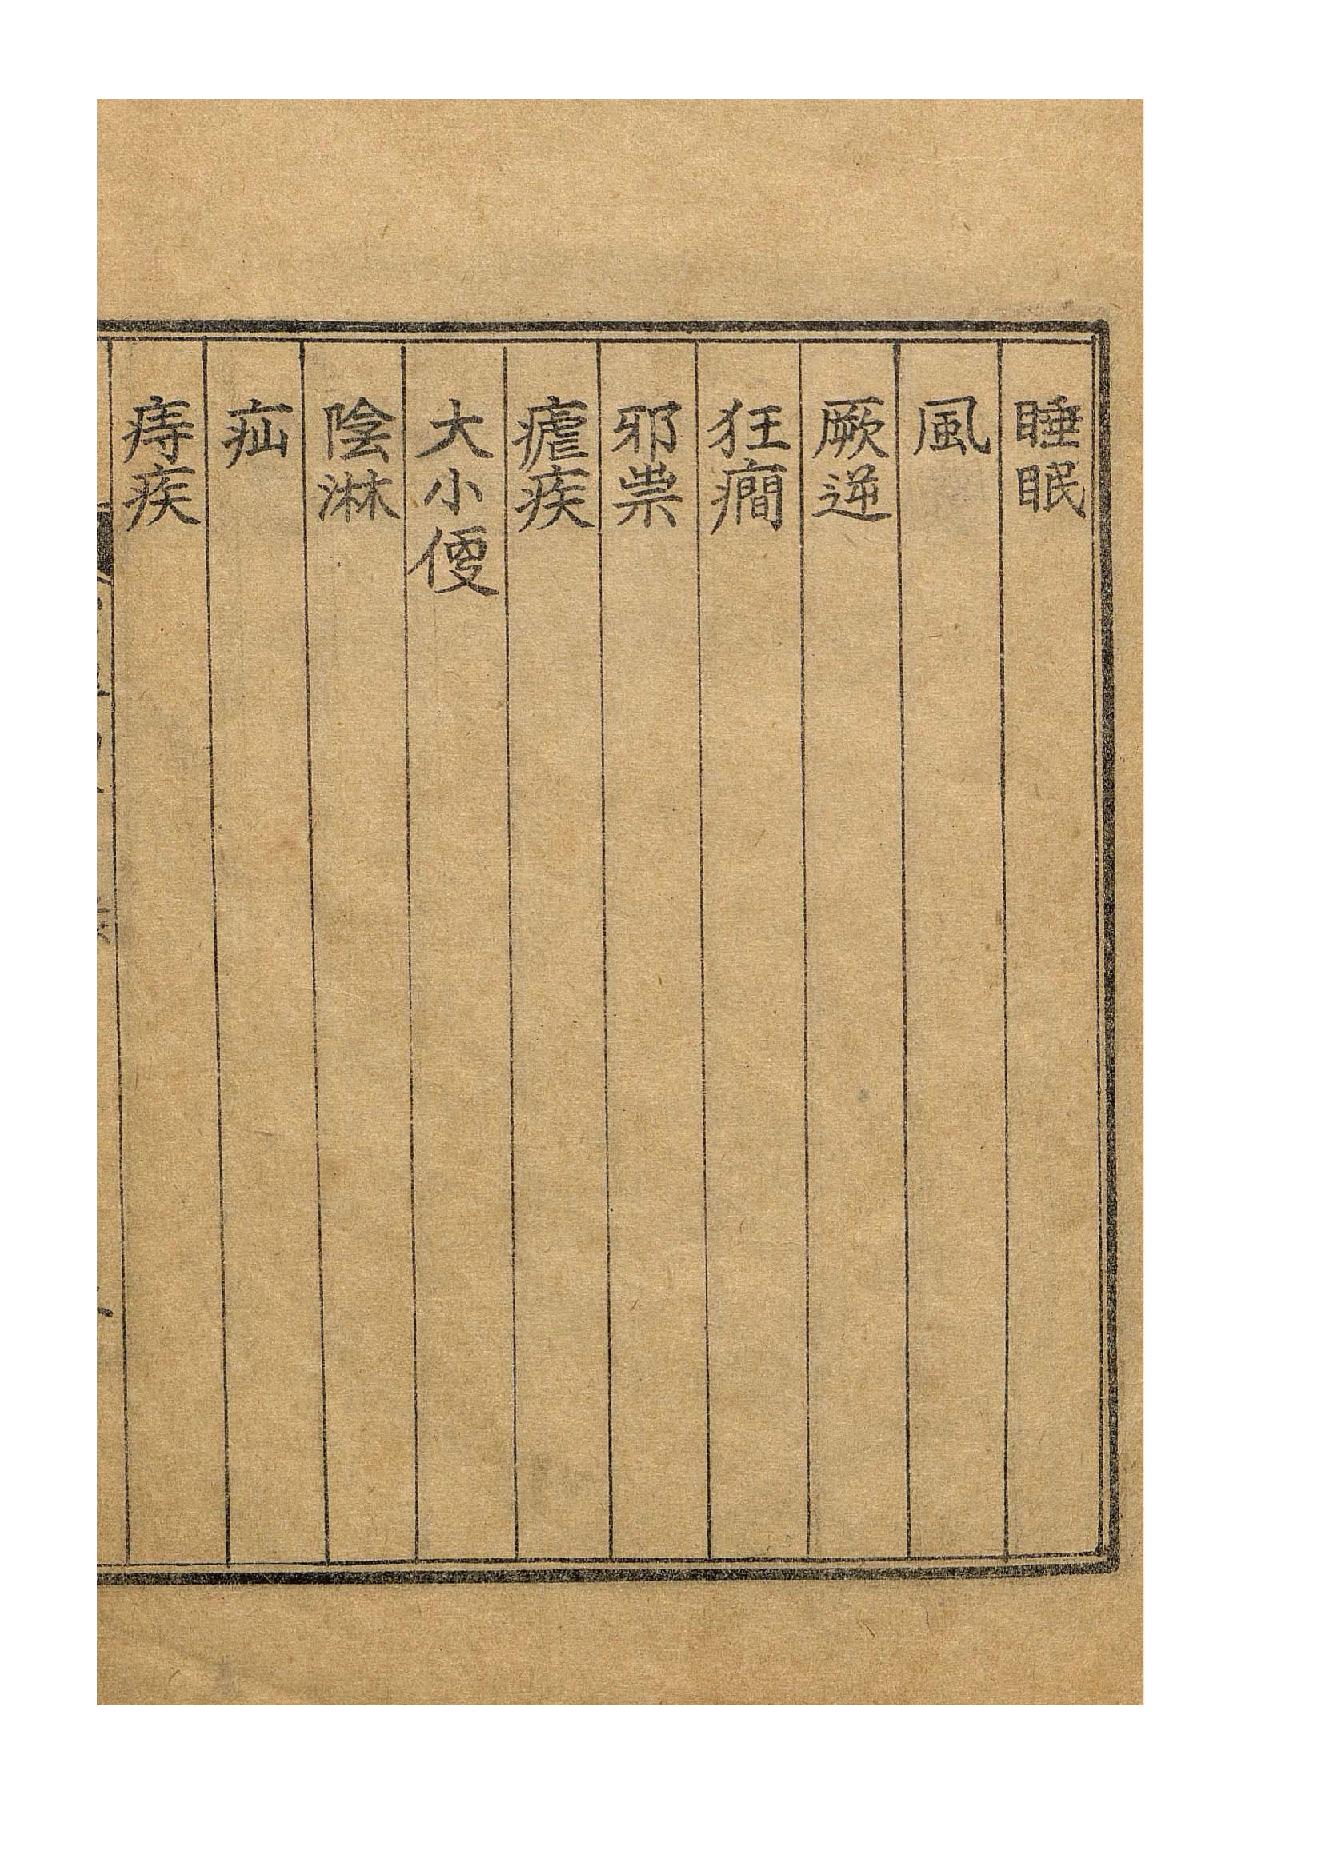 睡眠
風
厥逆
狂癎
邪祟
瘧疾
大小便
陰淋
疝
痔疾